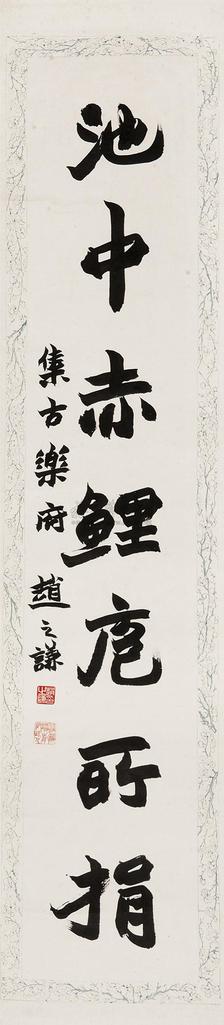 池中赤鲤庖所捐
集古樂府 趙之謙